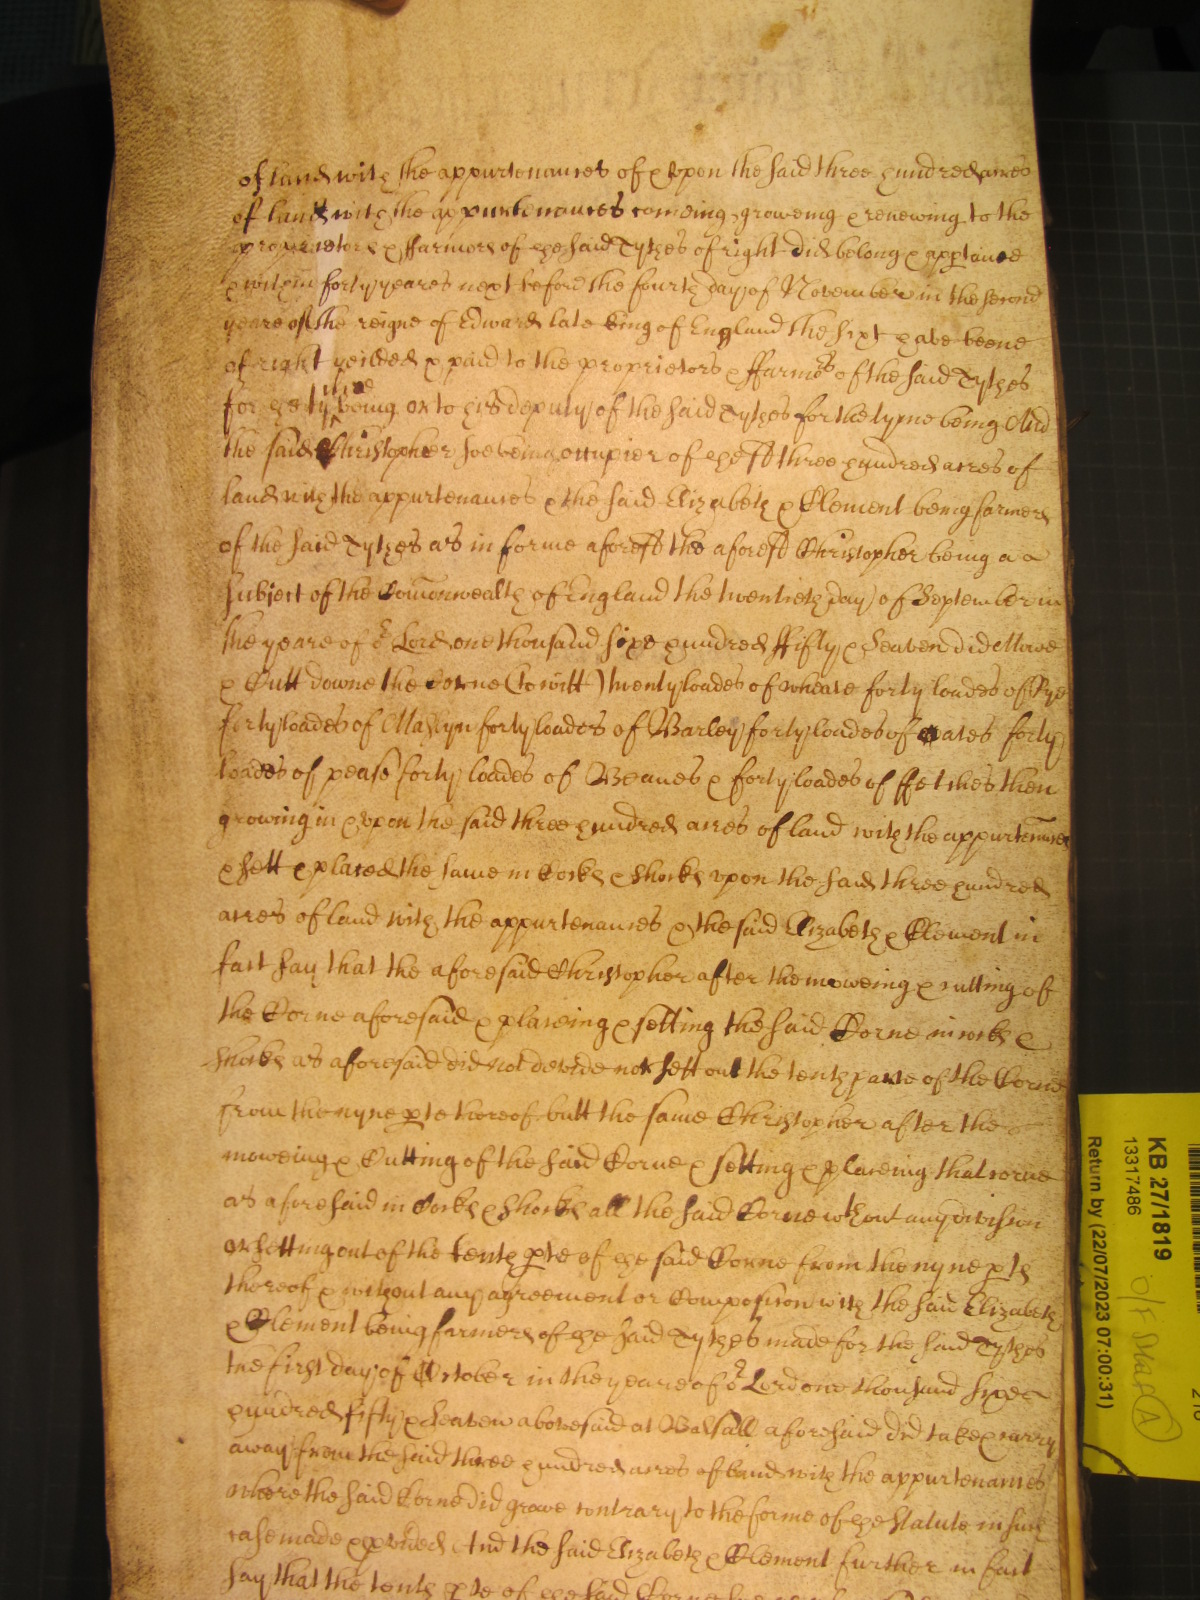 of land with the appurtenances of & vpon the said three hundred acres
of land with the appurtenances comeing groweing & renewing to the
proprietors & ffarmors of the said Tythes of right did belong & apperteine
& within forty yeares next before the fourth day of November in the second
yeare of the reigne of Edward late King of England the sixt have beene
of right yeilded & paid to the proprietors & ffarmors of the said Tythes
for the tyme being or to his deputy of the said Tythes for the tyme being And
the said Christopher soe being occupier of the sd three hundred acres of
land with the appurtenances & the said Elizabeth & Clement being farmers
of the said Tythes as in forme aforesd the aforesd Christopher being a
subject of the Comonwealth of England the twentieth day of September in
the yeare of or Lord one thousand sixe hundred ffifty & Seaven did Mowe
& Cutt downe the Corne (to witt) twenty loades of wheate forty loades of Rye
forty loades of Maslyn forty loades of Barley forty loades of oates forty
loades of pease forty loades of Beanes & forty loades of ffetches then
growing in & vpon the said three hundred acres of land with the appurtenances
& sett & placed the same in Cocks & Shocks vpon the said three hundred
acres of land with the appurtenances & the said Elizabeth & Clement in
fact say that the aforesaid Christopher after the moweing & cutting of
the Corne aforesaid & placeing & setting the said Corne in cocks &
shocks as aforesaid did not devide nor sett out the tenth parte of the Corne
from the nyne pte thereof butt the same Christopher after the
moweing & Cutting of the said Corne & setting & placeing that corne
as aforesaid in Cocks & Shocks all the said Corne wthout any division
or setting out of the tenth pte of the said Corne from the nyne pts
thereof & without any agreement or Composicon with the said Elizabeth
& Clement being farmers of the said Tythes made for the said Tythes
the first day of October in the yeare of or Lord one thousand sixe
hundred fifty & seaven abovesaid at Walsall aforesaid did take & carry
away from the said three hundred acres of land with the appurtenances
where the said Corne did growe contrary to the forme of the Statute in such
case made & pvided And the said Elizabeth & Clement further in fact
say that the tenth pte of the said Corne
KB 27/1819
13317486
Return by (22/07/2023 07:00:31)